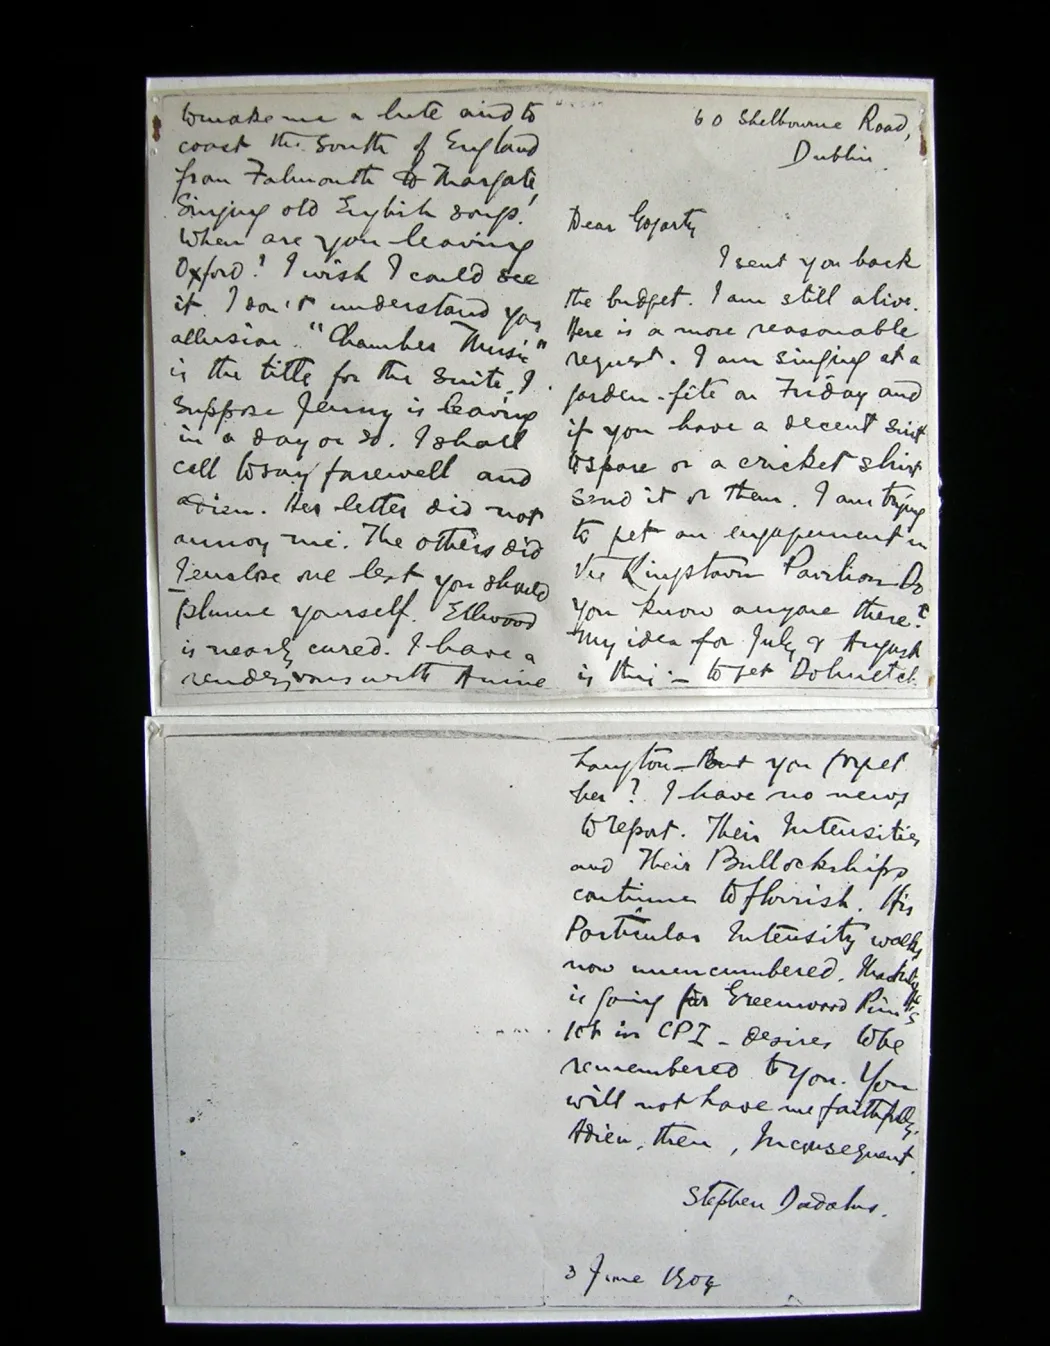 60 Shelbourne Road,
Dublin.
Dear Gogarty
I sent you back
the budget. I am still alive.
Here is a more reasonable
request. I am singing at a
garden-fête on Friday and
if you have a decent suit
to spare or a cricket shirt
send it or them. I am trying
to get an engagement in
the Kingstown Pavilion. Do
you know anyone there?
My idea for July & August
is this:— to get Dolmetsch
to make me a lute and to
coast the South of England
from Falmouth to Margate,
Singing old English songs.
When are you leaving
Oxford? I wish I could see
it. I don't understand your
allusion. "Chamber Music"
is the title for the suite. I
suppose Jenny is leaving
in a day or so. I shall
call to say farewell and
adieu. Her letter did not
annoy me. The others did
I enclose one lest you should
plume yourself. Ellwood
is nearly cured. I have a
rendezvous with Annie
Langton — But you forget
her? I have no news
to report. Their Intensities
and Their Bullockships
continue to flourish. His
Particular Intensity walks
now unencumbered.
is going for Greenwood Pim's
job in CPI — desires to be
remembered to You. You
will not have me faithfully.
Adieu, then, Inconsequent.
Stephen Daedalus.
3 June 1904